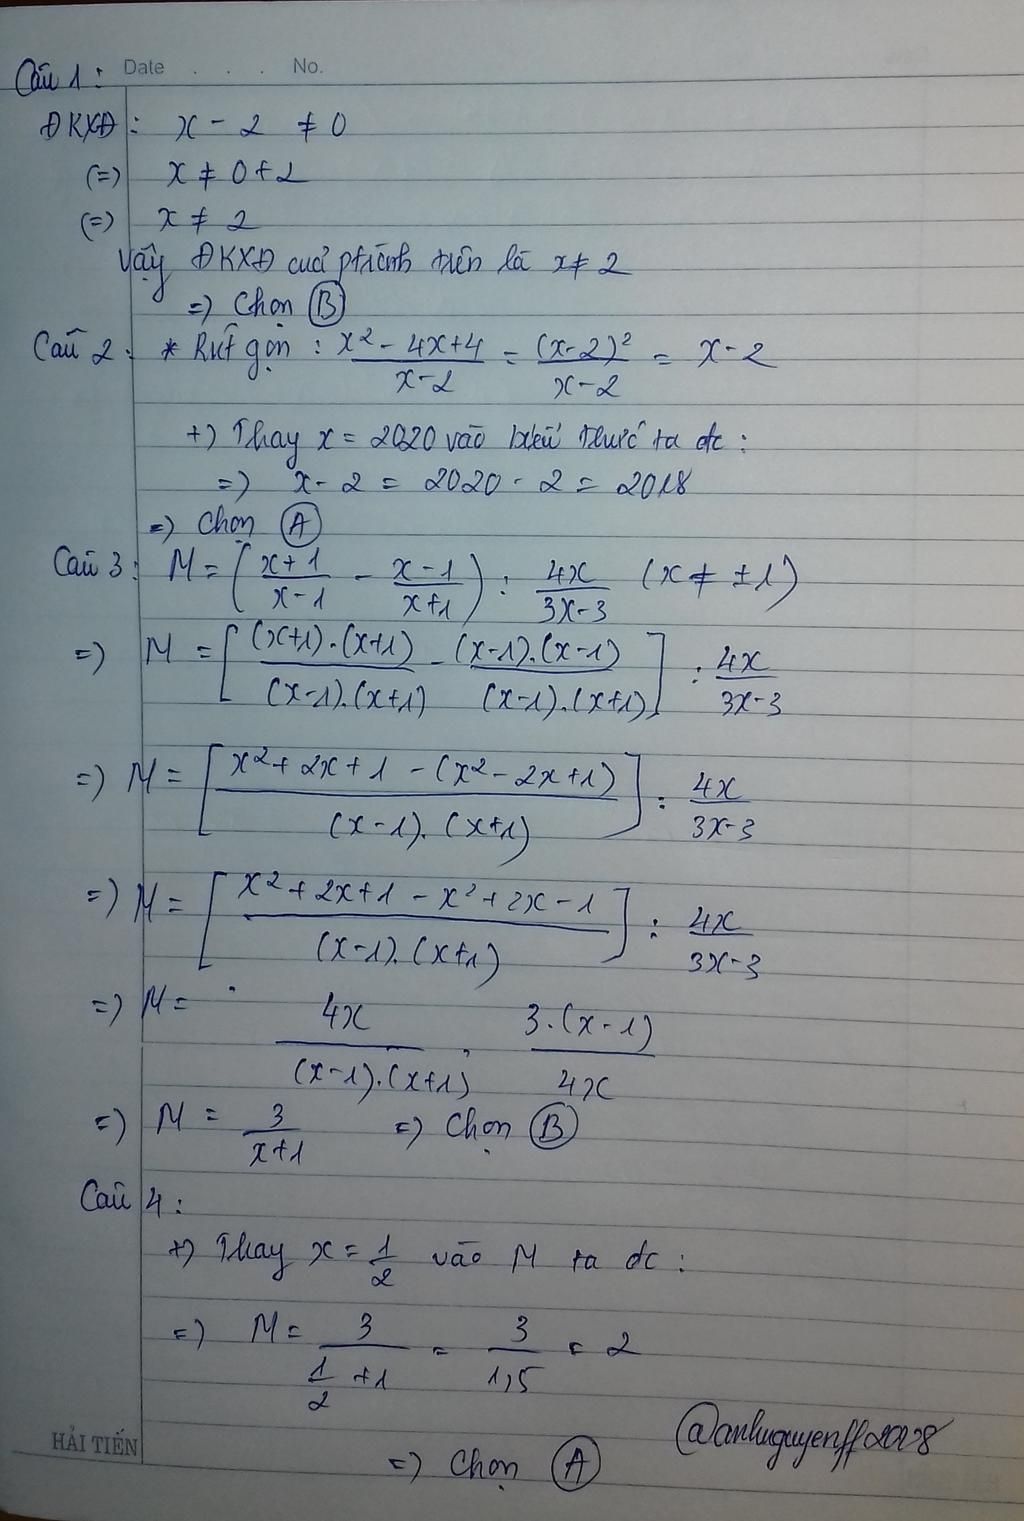 Câu 1: Date . . . No.
ĐKXĐ: x - 2 ≠ 0
(=) x ≠ 0+2
(=) x ≠ 2
Vậy ĐKXĐ của ptrình trên là x ≠ 2
=) Chọn Ⓑ
Câu 2: * Rút gọn : (x² - 4x+4)/(x-2) = (x-2)²/(x-2) = x-2
+) Thay x = 2020 vào biểu thức ta đc :
=) x - 2 = 2020 - 2 = 2018
=) Chọn Ⓐ
Câu 3: M = ((x+1)/(x-1) - (x-1)/(x+1)) : 4x/(3x-3) (x ≠ ±1)
=) M = [(x+1).(x+1)/((x-1).(x+1)) - (x-1).(x-1)/((x-1).(x+1))] : 4x/(3x-3)
=) M = [(x²+2x+1-(x²-2x+1))/((x-1).(x+1))] : 4x/(3x-3)
=) M = [(x²+2x+1-x²+2x-1)/((x-1).(x+1))] : 4x/(3x-3)
=) M = 4x/((x-1).(x+1)) . 3.(x-1)/4x
=) M = 3/(x+1) =) Chọn Ⓑ
Câu 4:
+) Thay x = 1/2 vào M ta đc :
=) M = 3/(1/2 +1) = 3/1,5 = 2
=) Chọn Ⓐ
HẢI TIẾN